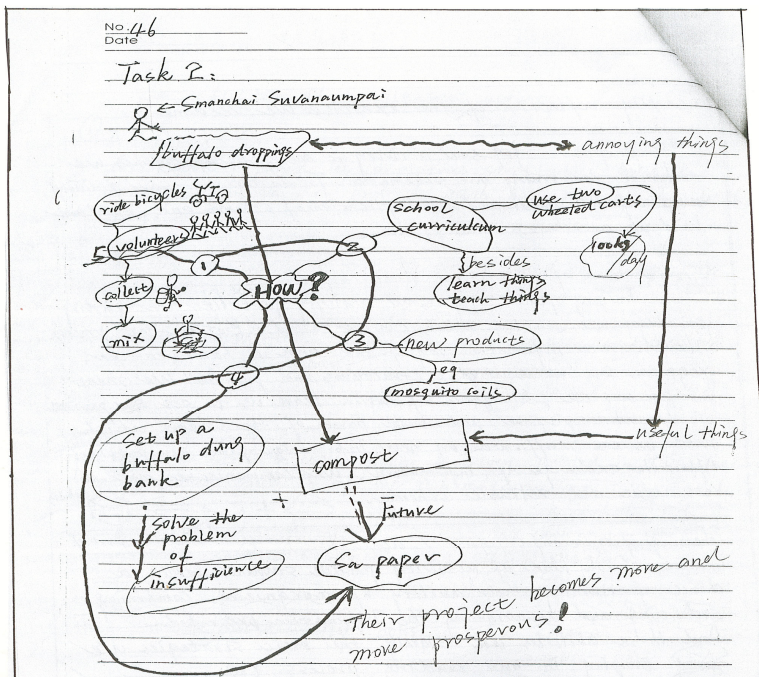 No. 46
Date
Task 2:
← Smanchai Suvanaumpai
buffalo droppings
annoying things
ride bicycles
5 volunteers
collect
mix
1
2
school
curriculcum
use two
wheeled carts
100kg
/day
besides
learn things
teach things
How?
3
new products
eg
mosquito coils
4
set up a
buffalo dung
bank
solve the
problem
of
insufficience
useful things
compost
+
Future
Sa paper
Their project becomes more and
more prosperous!